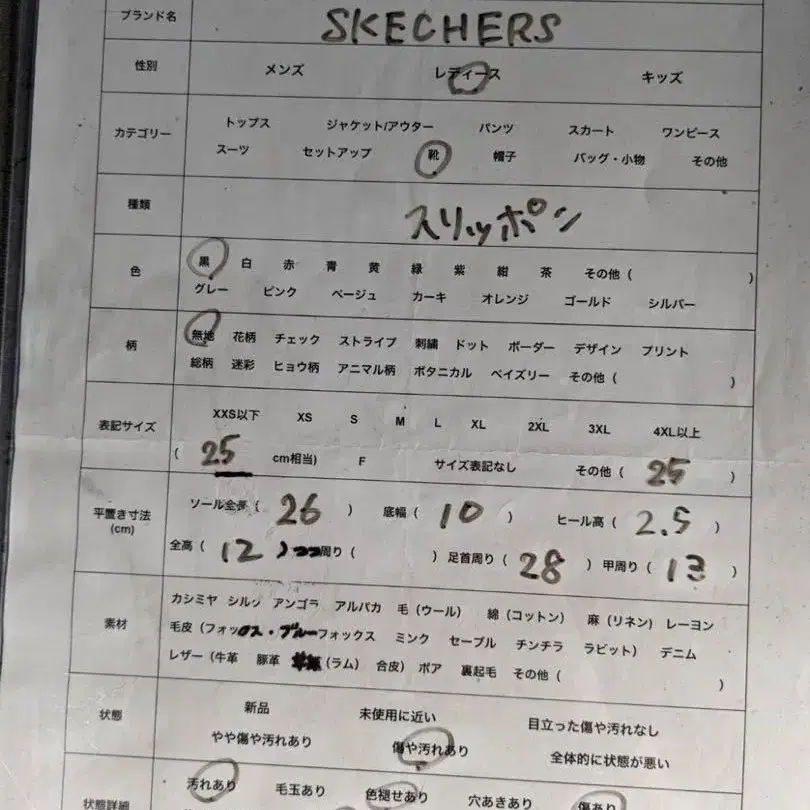 ブランド名 SKECHERS
性別 メンズ レディース キッズ
カテゴリー トップス ジャケット/アウター パンツ スカート ワンピース
スーツ セットアップ 靴 帽子 バッグ・小物 その他
種類 スリッポン
色 黒 白 赤 青 黄 緑 紫 紺 茶 その他 ( )
グレー ピンク ベージュ カーキ オレンジ ゴールド シルバー
柄 無地 花柄 チェック ストライプ 刺繍 ドット ボーダー デザイン プリント
総柄 迷彩 ヒョウ柄 アニマル柄 ボタニカル ペイズリー その他 ( )
表記サイズ XXS以下 XS S M L XL 2XL 3XL 4XL以上
( 25 cm相当) F サイズ表記なし その他 ( 25 )
平置き寸法 (cm) ソール全長 ( 26 ) 底幅 ( 10 ) ヒール高 ( 2.5 )
全高 ( 12 ) 周り ( ) 足首周り ( 28 ) 甲周り ( 13 )
素材 カシミヤ シルク アンゴラ アルパカ 毛 (ウール) 綿 (コットン) 麻 (リネン) レーヨン
毛皮 (フォックス・ブルーフォックス ミンク セーブル チンチラ ラビット) デニム
レザー (牛革 豚革 (ラム) 合皮) ボア 裏起毛 その他 ( )
状態 新品 未使用に近い 目立った傷や汚れなし
やや傷や汚れあり 傷や汚れあり 全体的に状態が悪い
状態詳細 汚れあり 毛玉あり 色褪せあり 穴あきあり 傷あり